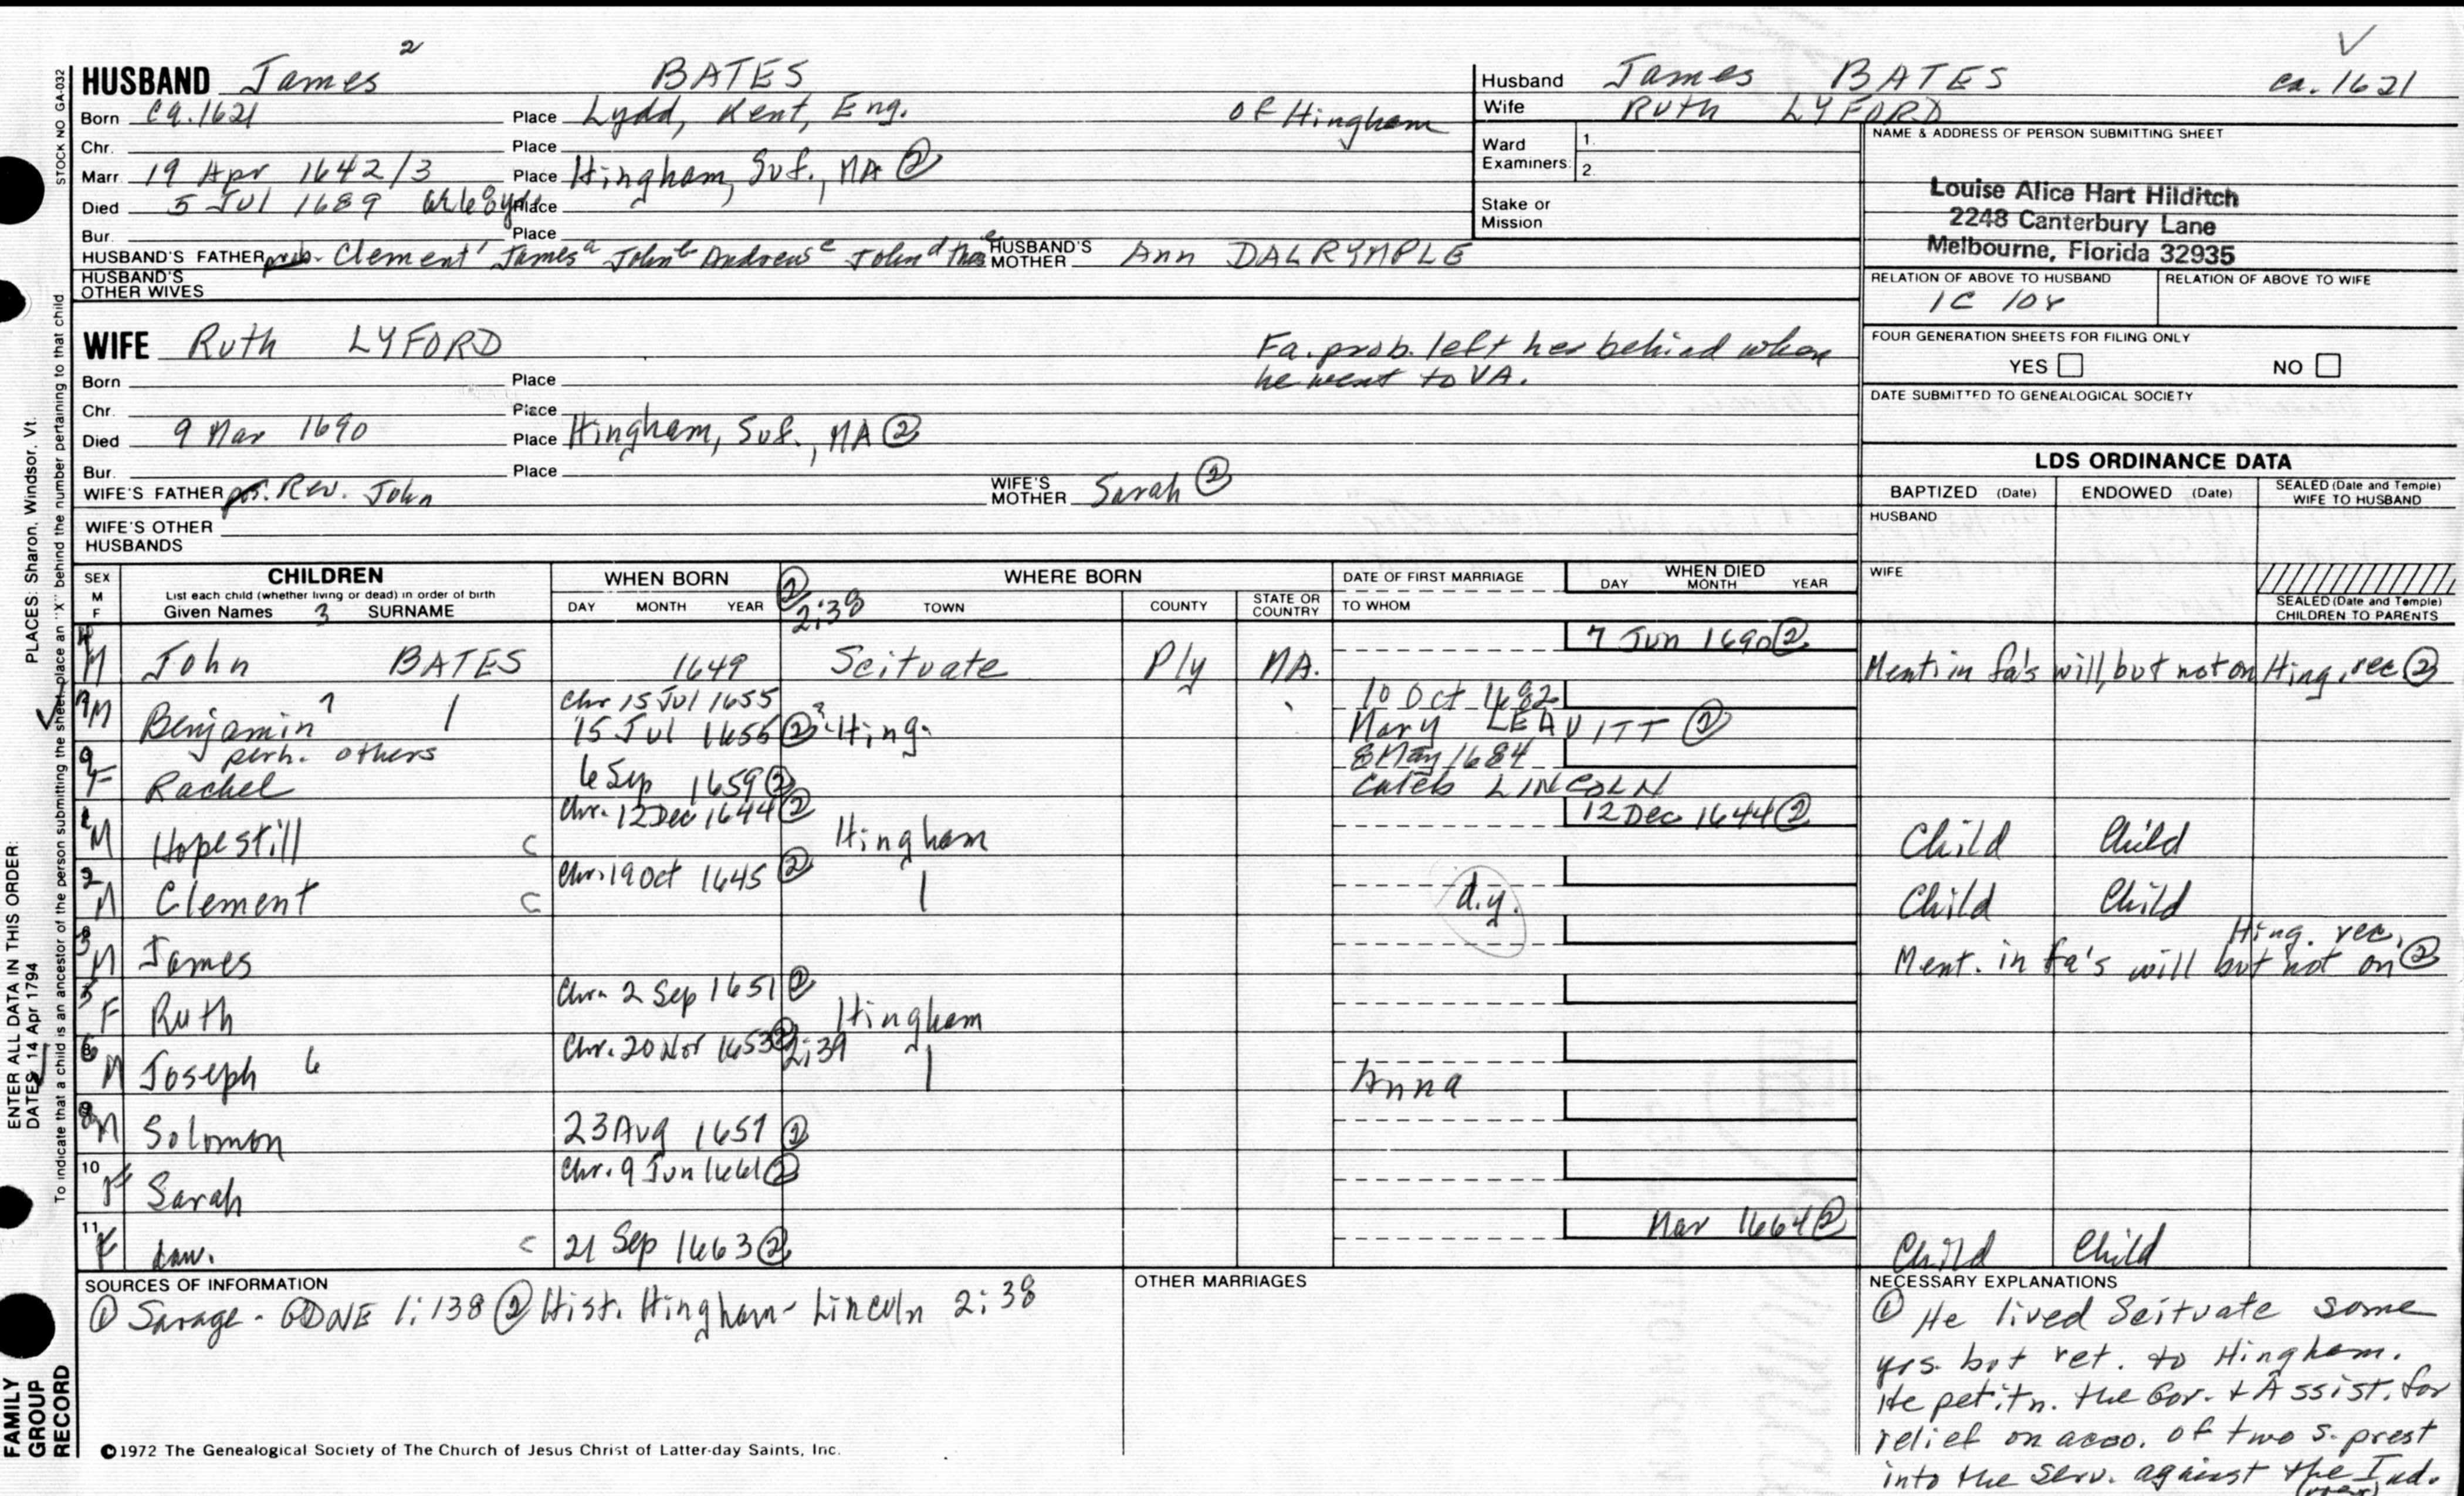 HUSBAND James 2 BATES
Born ca. 1621 Place Lydd, Kent, Eng. of Hingham
Chr. Place
Marr. 19 Apr 1642/3 Place Hingham, Suf., MA ②
Died 5 Jul 1689 Place
Bur. Place
HUSBAND'S FATHER prob. Clement 1 James a John b Andrews c John d HUSBAND'S MOTHER Ann DALRYMPLE
HUSBAND'S OTHER WIVES
Husband James BATES ca. 1621
Wife Ruth LYFORD
Ward Examiners: 1. 2.
Stake or Mission
NAME & ADDRESS OF PERSON SUBMITTING SHEET
Louise Alice Hart Hilditch
2248 Canterbury Lane
Melbourne, Florida 32935
RELATION OF ABOVE TO HUSBAND RELATION OF ABOVE TO WIFE
1C 10r
FOUR GENERATION SHEETS FOR FILING ONLY
YES NO
DATE SUBMITTED TO GENEALOGICAL SOCIETY
WIFE Ruth LYFORD Fa. prob. left her behind when
he went to VA.
Born Place
Chr. Place
Died 9 Mar 1690 Place Hingham, Suf., MA ②
Bur. Place
WIFE'S FATHER pos. Rev. John WIFE'S MOTHER Sarah ②
WIFE'S OTHER HUSBANDS
LDS ORDINANCE DATA
BAPTIZED (Date) ENDOWED (Date) SEALED (Date and Temple) WIFE TO HUSBAND
HUSBAND
WIFE
SEALED (Date and Temple) CHILDREN TO PARENTS
SEX M F CHILDREN List each child (whether living or dead) in order of birth Given Names 3 SURNAME
WHEN BORN DAY MONTH YEAR ② 2:38
WHERE BORN TOWN COUNTY STATE OR COUNTRY
DATE OF FIRST MARRIAGE TO WHOM
WHEN DIED DAY MONTH YEAR
7 Jun 1690 ②
4 M John BATES 1649 Scituate Ply MA. Ment. in fa's will, but not on Hing. rec ②
Chr 15 Jul 1655 10 Oct 1682
M Benjamin 7 15 Jul 1655 ② Hing. Mary LEAVITT ②
perh. others 8 May 1684
9 F Rachel 6 Sep 1659 ② Caleb LINCOLN
Chr. 12 Dec 1644 ② 12 Dec 1644 ②
1 M Hopestill C Hingham Child Child
Chr. 19 Oct 1645 ②
2 M Clement C d.y. Child Child
Hing. rec.
3 M James Ment. in fa's will but not on ②
Chr. 2 Sep 1651 ②
5 F Ruth Hingham
Chr. 20 Nov 1653 ② 2:39
6 M Joseph 6 Anna
8 M Solomon 23 Aug 1657 ②
10 F Sarah Chr. 9 Jun 1661 ②
Mar 1664 ②
11 F dau. C 21 Sep 1663 ② Child Child
SOURCES OF INFORMATION
① Savage - GDNE 1:138 ② Hist. Hingham - Lincoln 2:38
OTHER MARRIAGES
NECESSARY EXPLANATIONS
① He lived Scituate some
yrs. but ret. to Hingham.
He petitn. the Gov. & Assist. for
relief on acco. of two s. prest
into the Serv. against the Ind.
(over)
©1972 The Genealogical Society of The Church of Jesus Christ of Latter-day Saints, Inc.
STOCK NO GA-032
To indicate that a child is an ancestor of the person submitting the sheet, place an "X" behind the number pertaining to that child
PLACES: Sharon, Windsor, Vt.
ENTER ALL DATA IN THIS ORDER:
DATES 14 Apr 1794
FAMILY
GROUP
RECORD